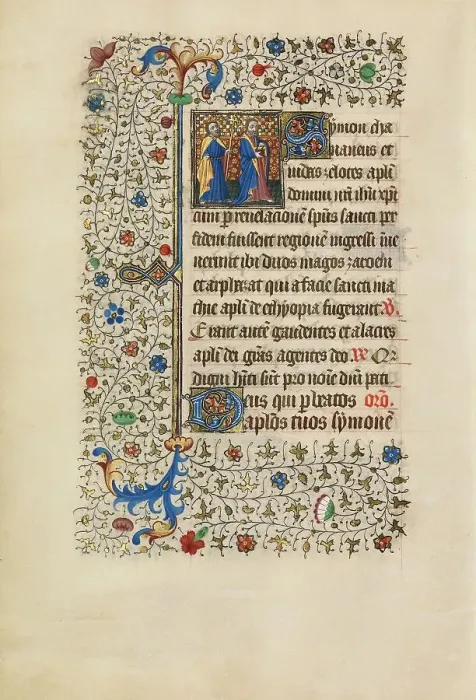 Symon cha
naneus et
iudas zelotes apli
domini nr̄i ihū xp̄i
cum p reuelationē spūs sancti per
fidem fuissent regionē ingressi iue
nerunt ibi duos magos zaroen
et arphaxat qui a facie sancti ma
thie apli de ethyopia fugerant. V.
Erant autē gaudentes et alacres
apli dei grās agentes deo. R Qr
digni hīti sūt pro noīe dnī pati
Deus qui p beatos orō.
aplōs tuos symonē